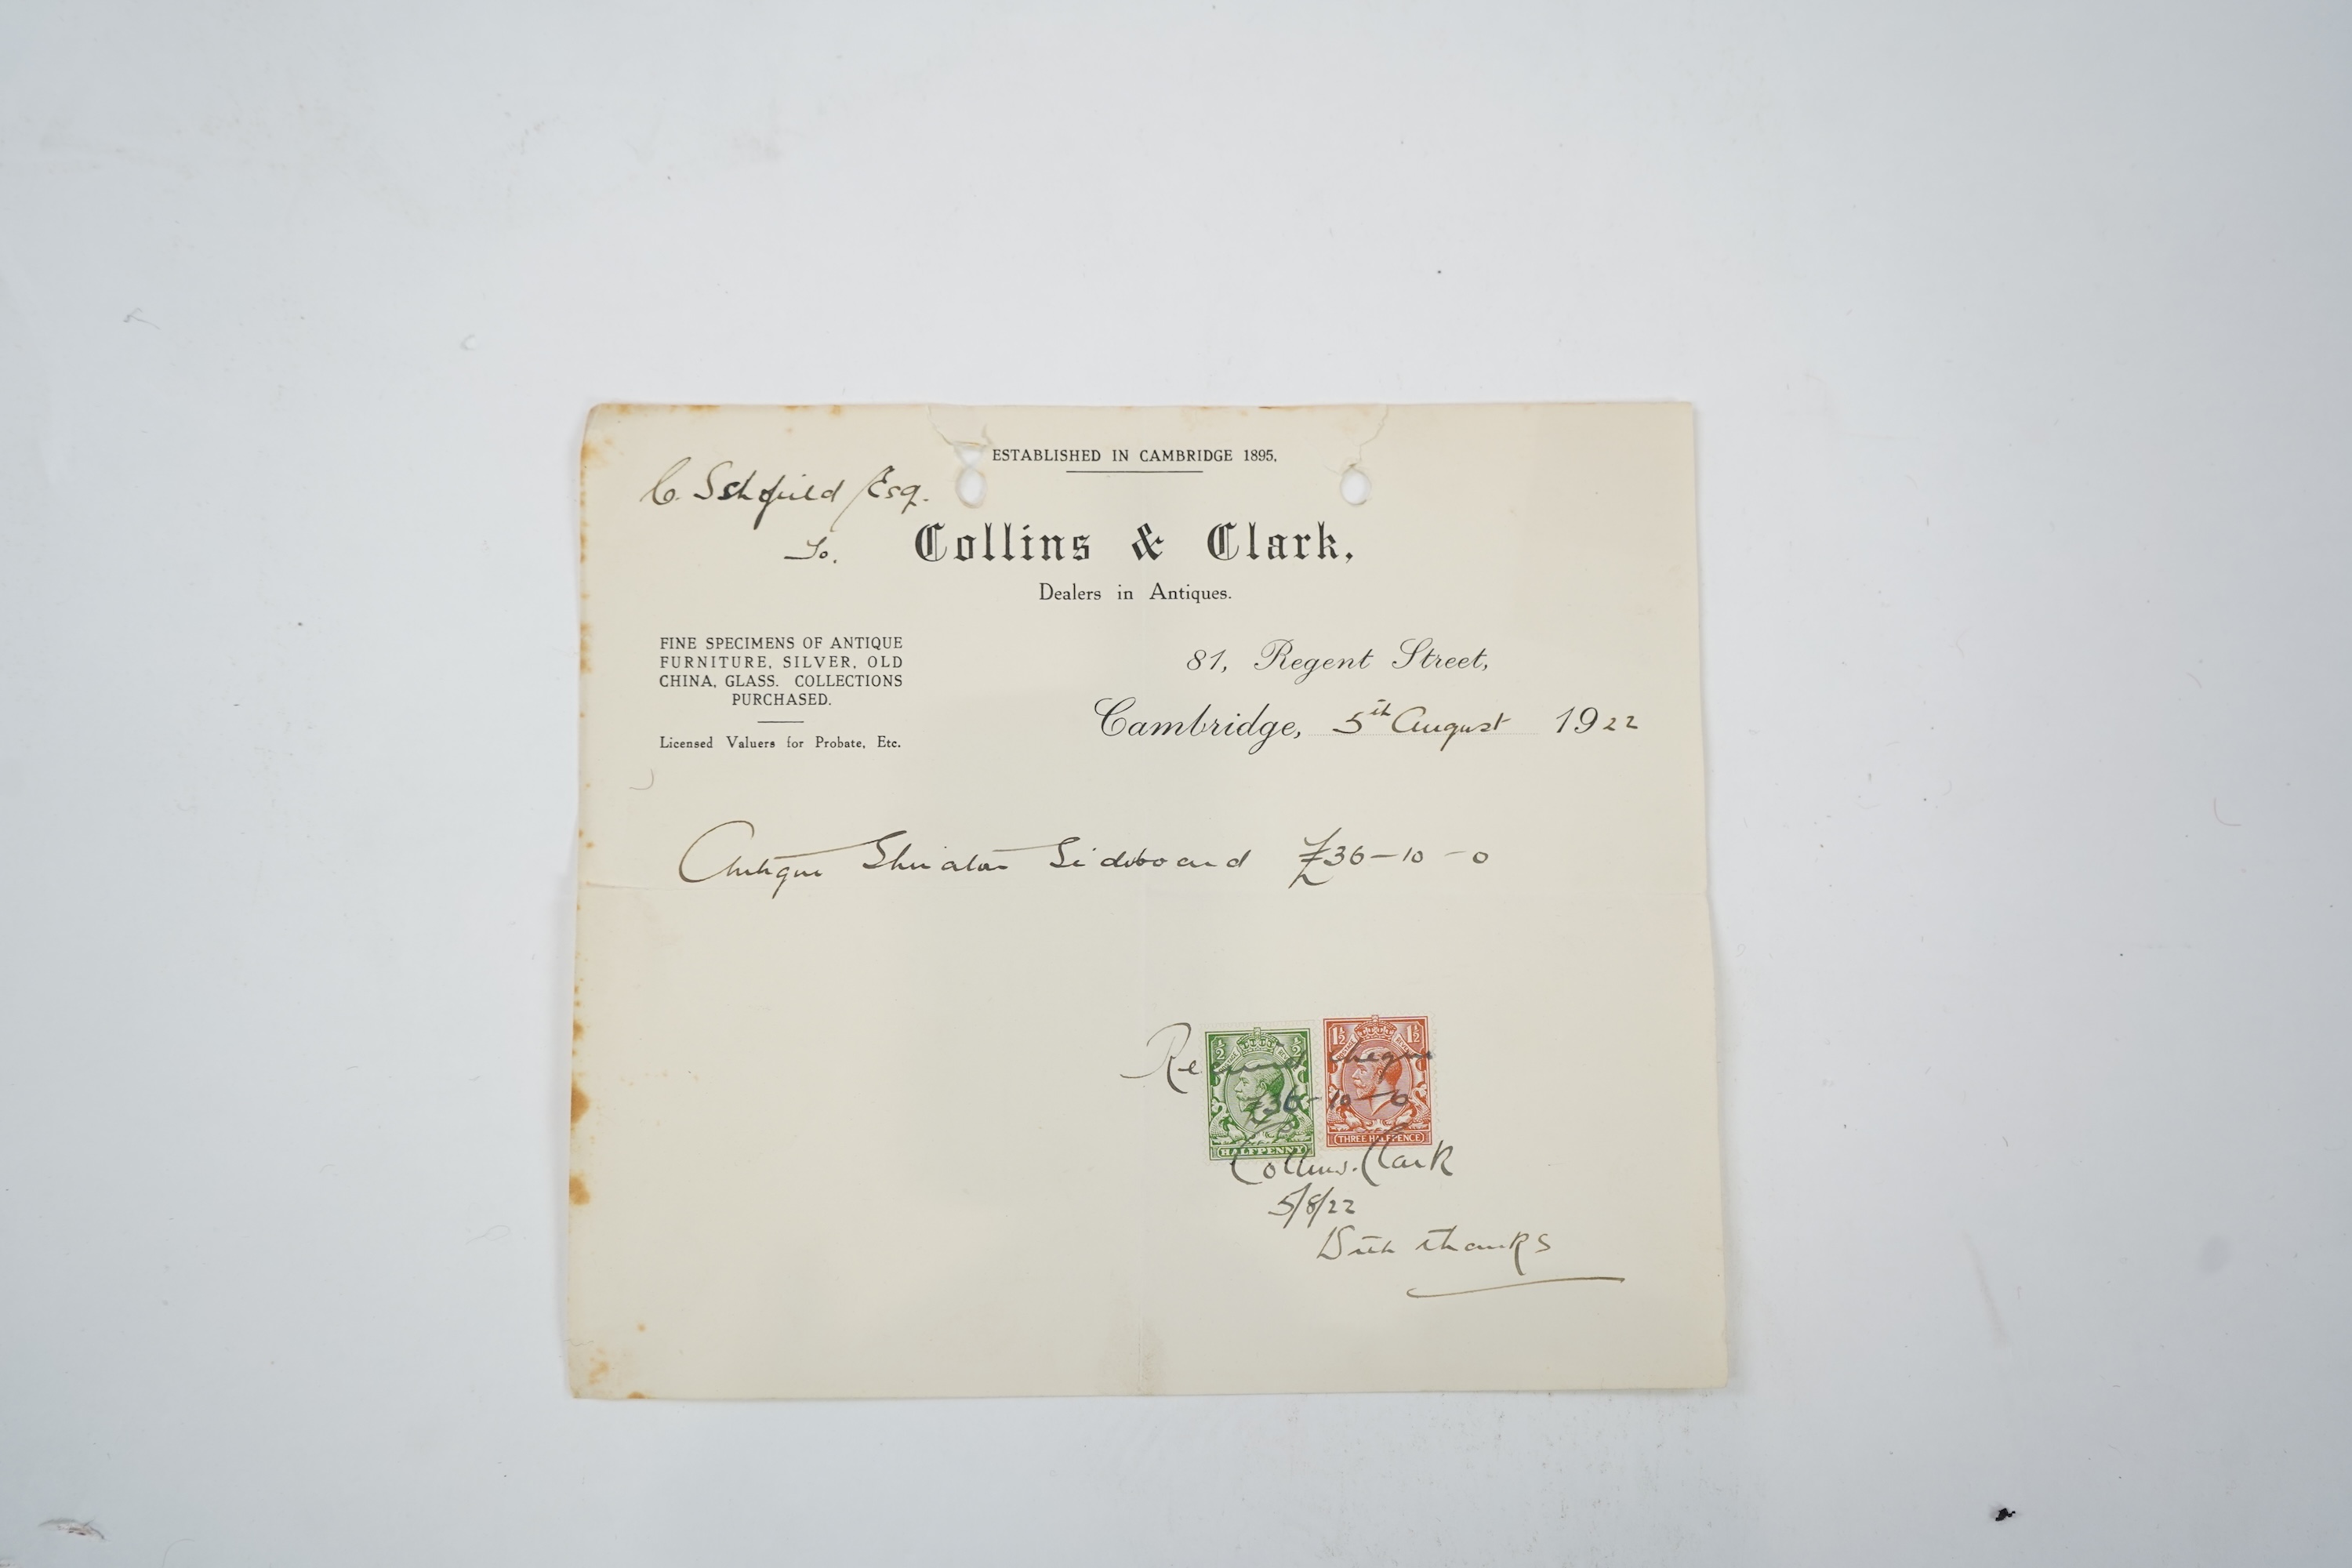 ESTABLISHED IN CAMBRIDGE 1895.
C. Schofield Esq.
To. Collins & Clark,
Dealers in Antiques.
FINE SPECIMENS OF ANTIQUE
FURNITURE, SILVER, OLD
CHINA, GLASS. COLLECTIONS
PURCHASED.
Licensed Valuers for Probate, Etc.
81, Regent Street,
Cambridge, 5th August 1922
Antique Sheraton Sideboard £36-10-0
Received cheque
£36-10-0
Collins. Clark
5/8/22
With thanks
½ ½
HALFPENNY
1½ 1½
THREE HALFPENCE